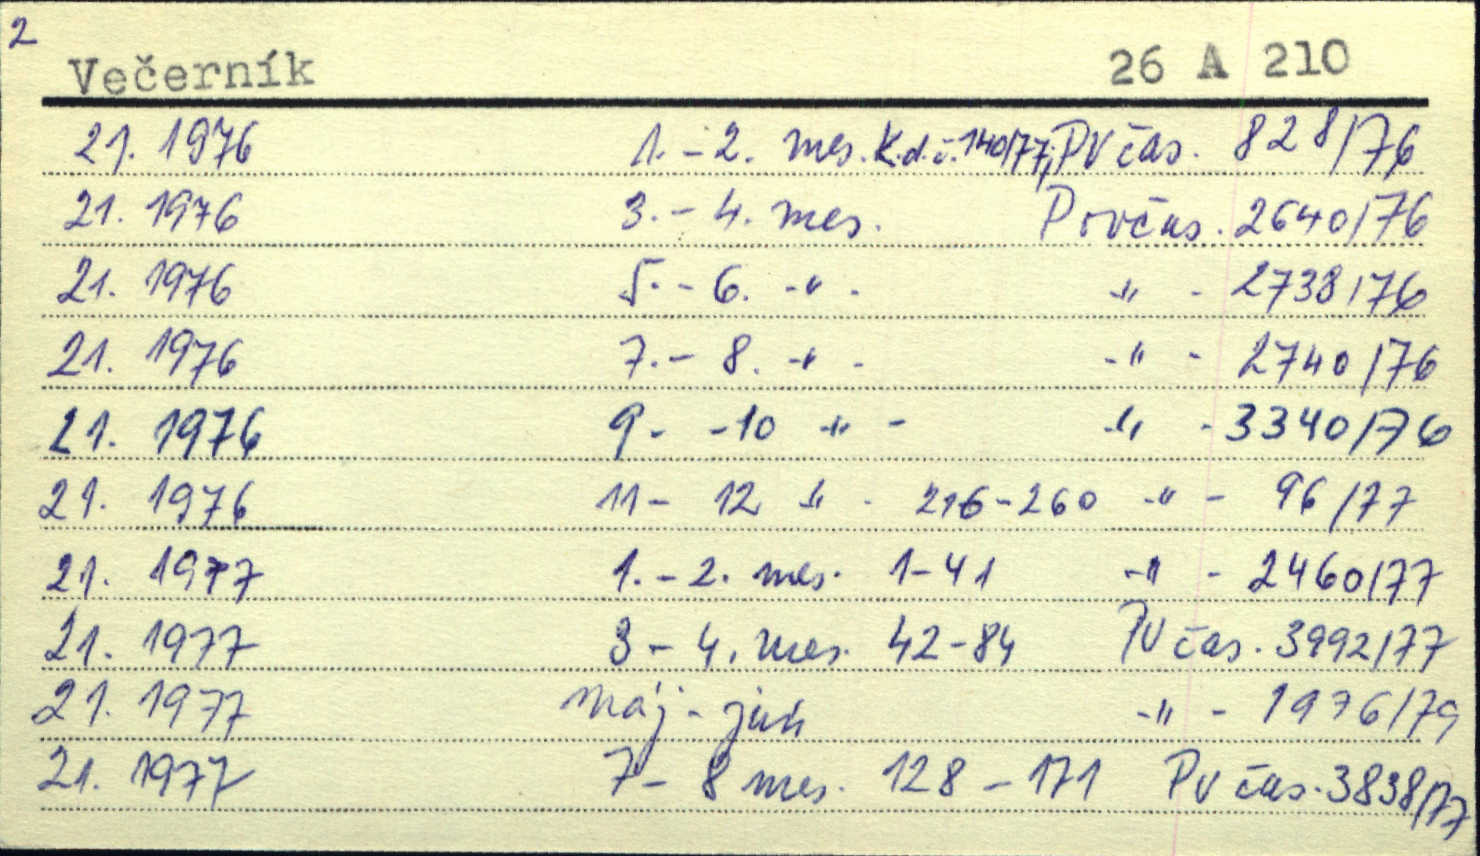 2
Večerník 26 A 210
21. 1976 1. - 2. mes. K.d.č. 140/77; PV čas. 828/76
21. 1976 3. - 4. mes. PVčas. 2640/76
21. 1976 5. - 6. -"- -"- 2738/76
21. 1976 7. - 8. -"- -"- 2740/76
21. 1976 9 - -10 -"- -"- 3340/76
21. 1976 11 - 12 -"- 216-260 -"- 96/77
21. 1977 1. - 2. mes. 1-41 -"- 2460/77
21. 1977 3 - 4. mes. 42-84 PV čas. 3992/77
21. 1977 máj - jún -"- 1976/79
21. 1977 7 - 8 mes. 128 - 171 PV čas. 3838/77